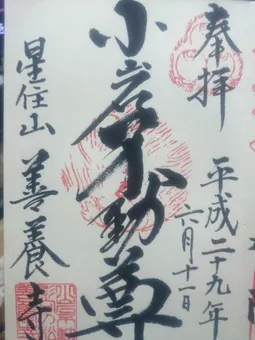 奉拝
平成二十九年
六月十一日
小岩不動尊
星住山 善養寺